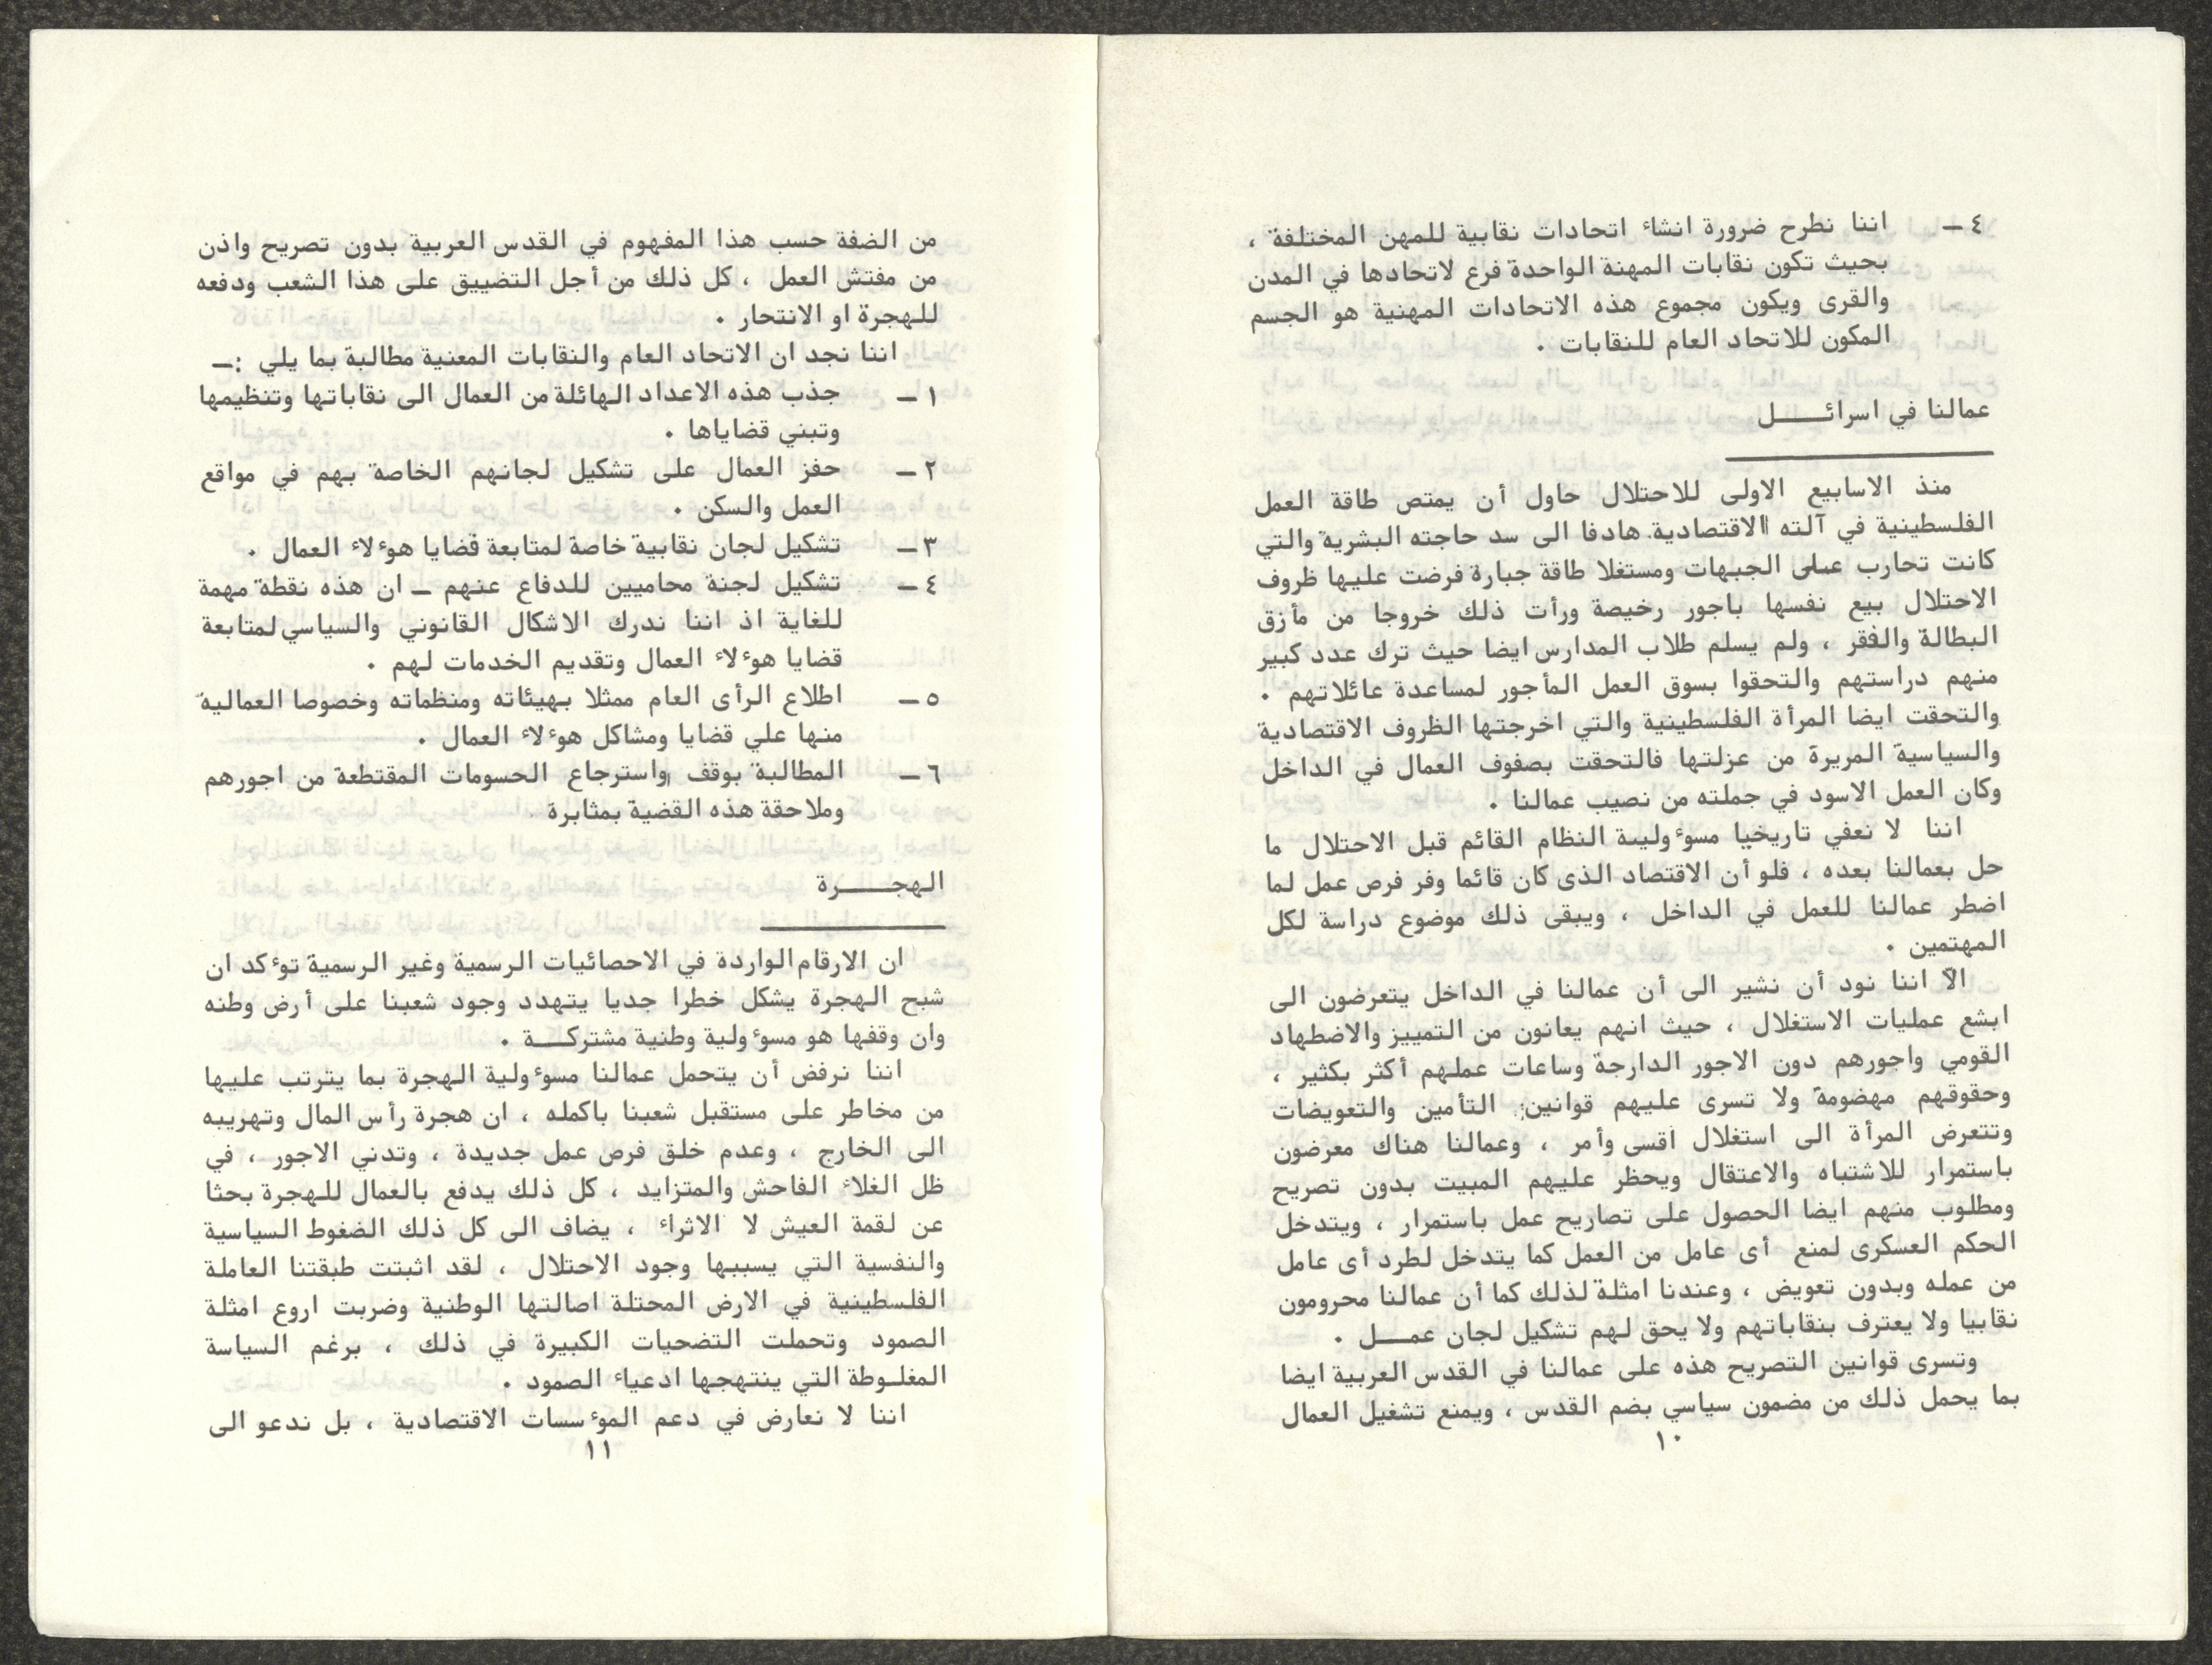 ٤ – اننا نطرح ضرورة انشاء اتحادات نقابية للمهن المختلفة ،
بحيث تكون نقابات المهنة الواحدة فرع لاتحادها في المدن
والقرى ويكون مجموع هذه الاتحادات المهنية هو الجسم
المكون للاتحاد العام للنقابات .
عمالنا في اسرائــــل
منذ الاسابيع الاولى للاحتلال حاول أن يمتص طاقة العمل
الفلسطينية في آلته الاقتصادية هادفا الى سد حاجته البشرية والتي
كانت تحارب على الجبهات ومستغلا طاقة جبارة فرضت عليها ظروف
الاحتلال بيع نفسها باجور رخيصة ورأت ذلك خروجا من مأزق
البطالة والفقر ، ولم يسلم طلاب المدارس ايضا حيث ترك عدد كبير
منهم دراستهم والتحقوا بسوق العمل المأجور لمساعدة عائلاتهم .
والتحقت ايضا المرأة الفلسطينية والتي اخرجتها الظروف الاقتصادية
والسياسية المريرة من عزلتها فالتحقت بصفوف العمال في الداخل
وكان العمل الاسود في جملته من نصيب عمالنا .
اننا لا نعفي تاريخيا مسوٴولية النظام القائم قبل الاحتلال ما
حل بعمالنا بعده ، فلو أن الاقتصاد الذى كان قائما وفر فرص عمل لما
اضطر عمالنا للعمل في الداخل ، ويبقى ذلك موضوع دراسة لكل
المهتمين .
الآ اننا نود أن نشير الى أن عمالنا في الداخل يتعرضون الى
ابشع عمليات الاستغلال ، حيث انهم يعانون من التمييز والاضطهاد
القومي واجورهم دون الاجور الدارجة وساعات عملهم أكثر بكثير ،
وحقوقهم مهضومة ولا تسرى عليهم قوانين التأمين والتعويضات
وتتعرض المرأة الى استغلال أقسى وأمر ، وعمالنا هناك معرضون
باستمرار للاشتباه والاعتقال ويحظر عليهم المبيت بدون تصريح
ومطلوب منهم ايضا الحصول على تصاريح عمل باستمرار ، ويتدخل
الحكم العسكرى لمنع أى عامل من العمل كما يتدخل لطرد أى عامل
من عمله وبدون تعويض ، وعندنا امثلة لذلك كما أن عمالنا محرومون
نقابيا ولا يعترف بنقاباتهم ولا يحق لهم تشكيل لجان عمــل .
وتسرى قوانين التصريح هذه على عمالنا في القدس العربية ايضا
بما يحمل ذلك من مضمون سياسي بضم القدس ، ويمنع تشغيل العمال
١٠
من الضفة حسب هذا المفهوم في القدس العربية بدون تصريح واذن
من مفتش العمل ، كل ذلك من أجل التضييق على هذا الشعب ودفعه
للهجرة او الانتحار .
اننا نجد ان الاتحاد العام والنقابات المعنية مطالبة بما يلي :–
١ – جذب هذه الاعداد الهائلة من العمال الى نقاباتها وتنظيمها
وتبني قضاياها .
٢ – حفز العمال على تشكيل لجانهم الخاصة بهم في مواقع
العمل والسكن .
٣ – تشكيل لجان نقابية خاصة لمتابعة قضايا هوٴلاء العمال .
٤ – تشكيل لجنة محاميين للدفاع عنهم – ان هذه نقطة مهمة
للغاية اذ اننا ندرك الاشكال القانوني والسياسي لمتابعة
قضايا هوٴلاء العمال وتقديم الخدمات لهم .
٥ – اطلاع الرأى العام ممثلا بهيئاته ومنظماته وخصوصا العمالية
منها علي قضايا ومشاكل هوٴلاء العمال .
٦ – المطالبة بوقف واسترجاع الحسومات المقتطعة من اجورهم
وملاحقة هذه القضية بمثابرة
الهجــــرة
ان الارقام الواردة في الاحصائيات الرسمية وغير الرسمية توٴكد ان
شبح الهجرة يشكل خطرا جديا يتهدد وجود شعبنا على أرض وطنه
وان وقفها هو مسوٴولية وطنية مشتركــة .
اننا نرفض أن يتحمل عمالنا مسوٴولية الهجرة بما يترتب عليها
من مخاطر على مستقبل شعبنا باكمله ، ان هجرة رأس المال وتهريبه
الى الخارج ، وعدم خلق فرص عمل جديدة ، وتدني الاجور ، في
ظل الغلاء الفاحش والمتزايد ، كل ذلك يدفع بالعمال للهجرة بحثا
عن لقمة العيش لا الاثراء ، يضاف الى كل ذلك الضغوط السياسية
والنفسية التي يسببها وجود الاحتلال ، لقد اثبتت طبقتنا العاملة
الفلسطينية في الارض المحتلة اصالتها الوطنية وضربت اروع امثلة
الصمود وتحملت التضحيات الكبيرة في ذلك ، برغم السياسة
المغلـوطة التي ينتهجها ادعياء الصمود .
اننا لا نعارض في دعم الموٴسسات الاقتصادية ، بل ندعو الى
١١